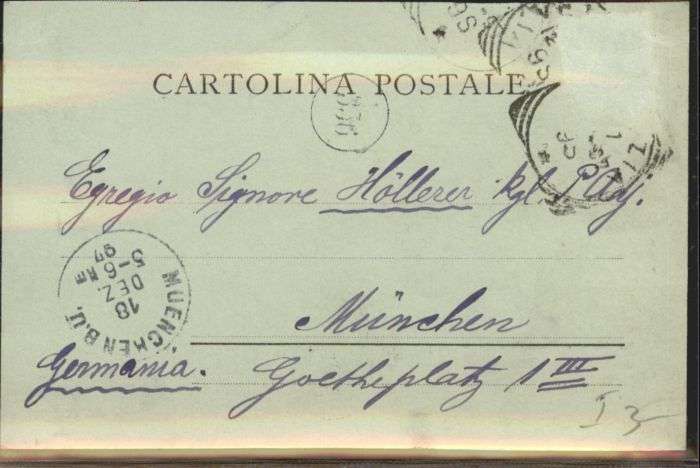 CARTOLINA POSTALE
Egregio Signore Höllerer kgl. Adj.
München
Germania. Goetheplatz 1 III
MUENCHEN B.U.
18
DEZ.
5-6 NM
97